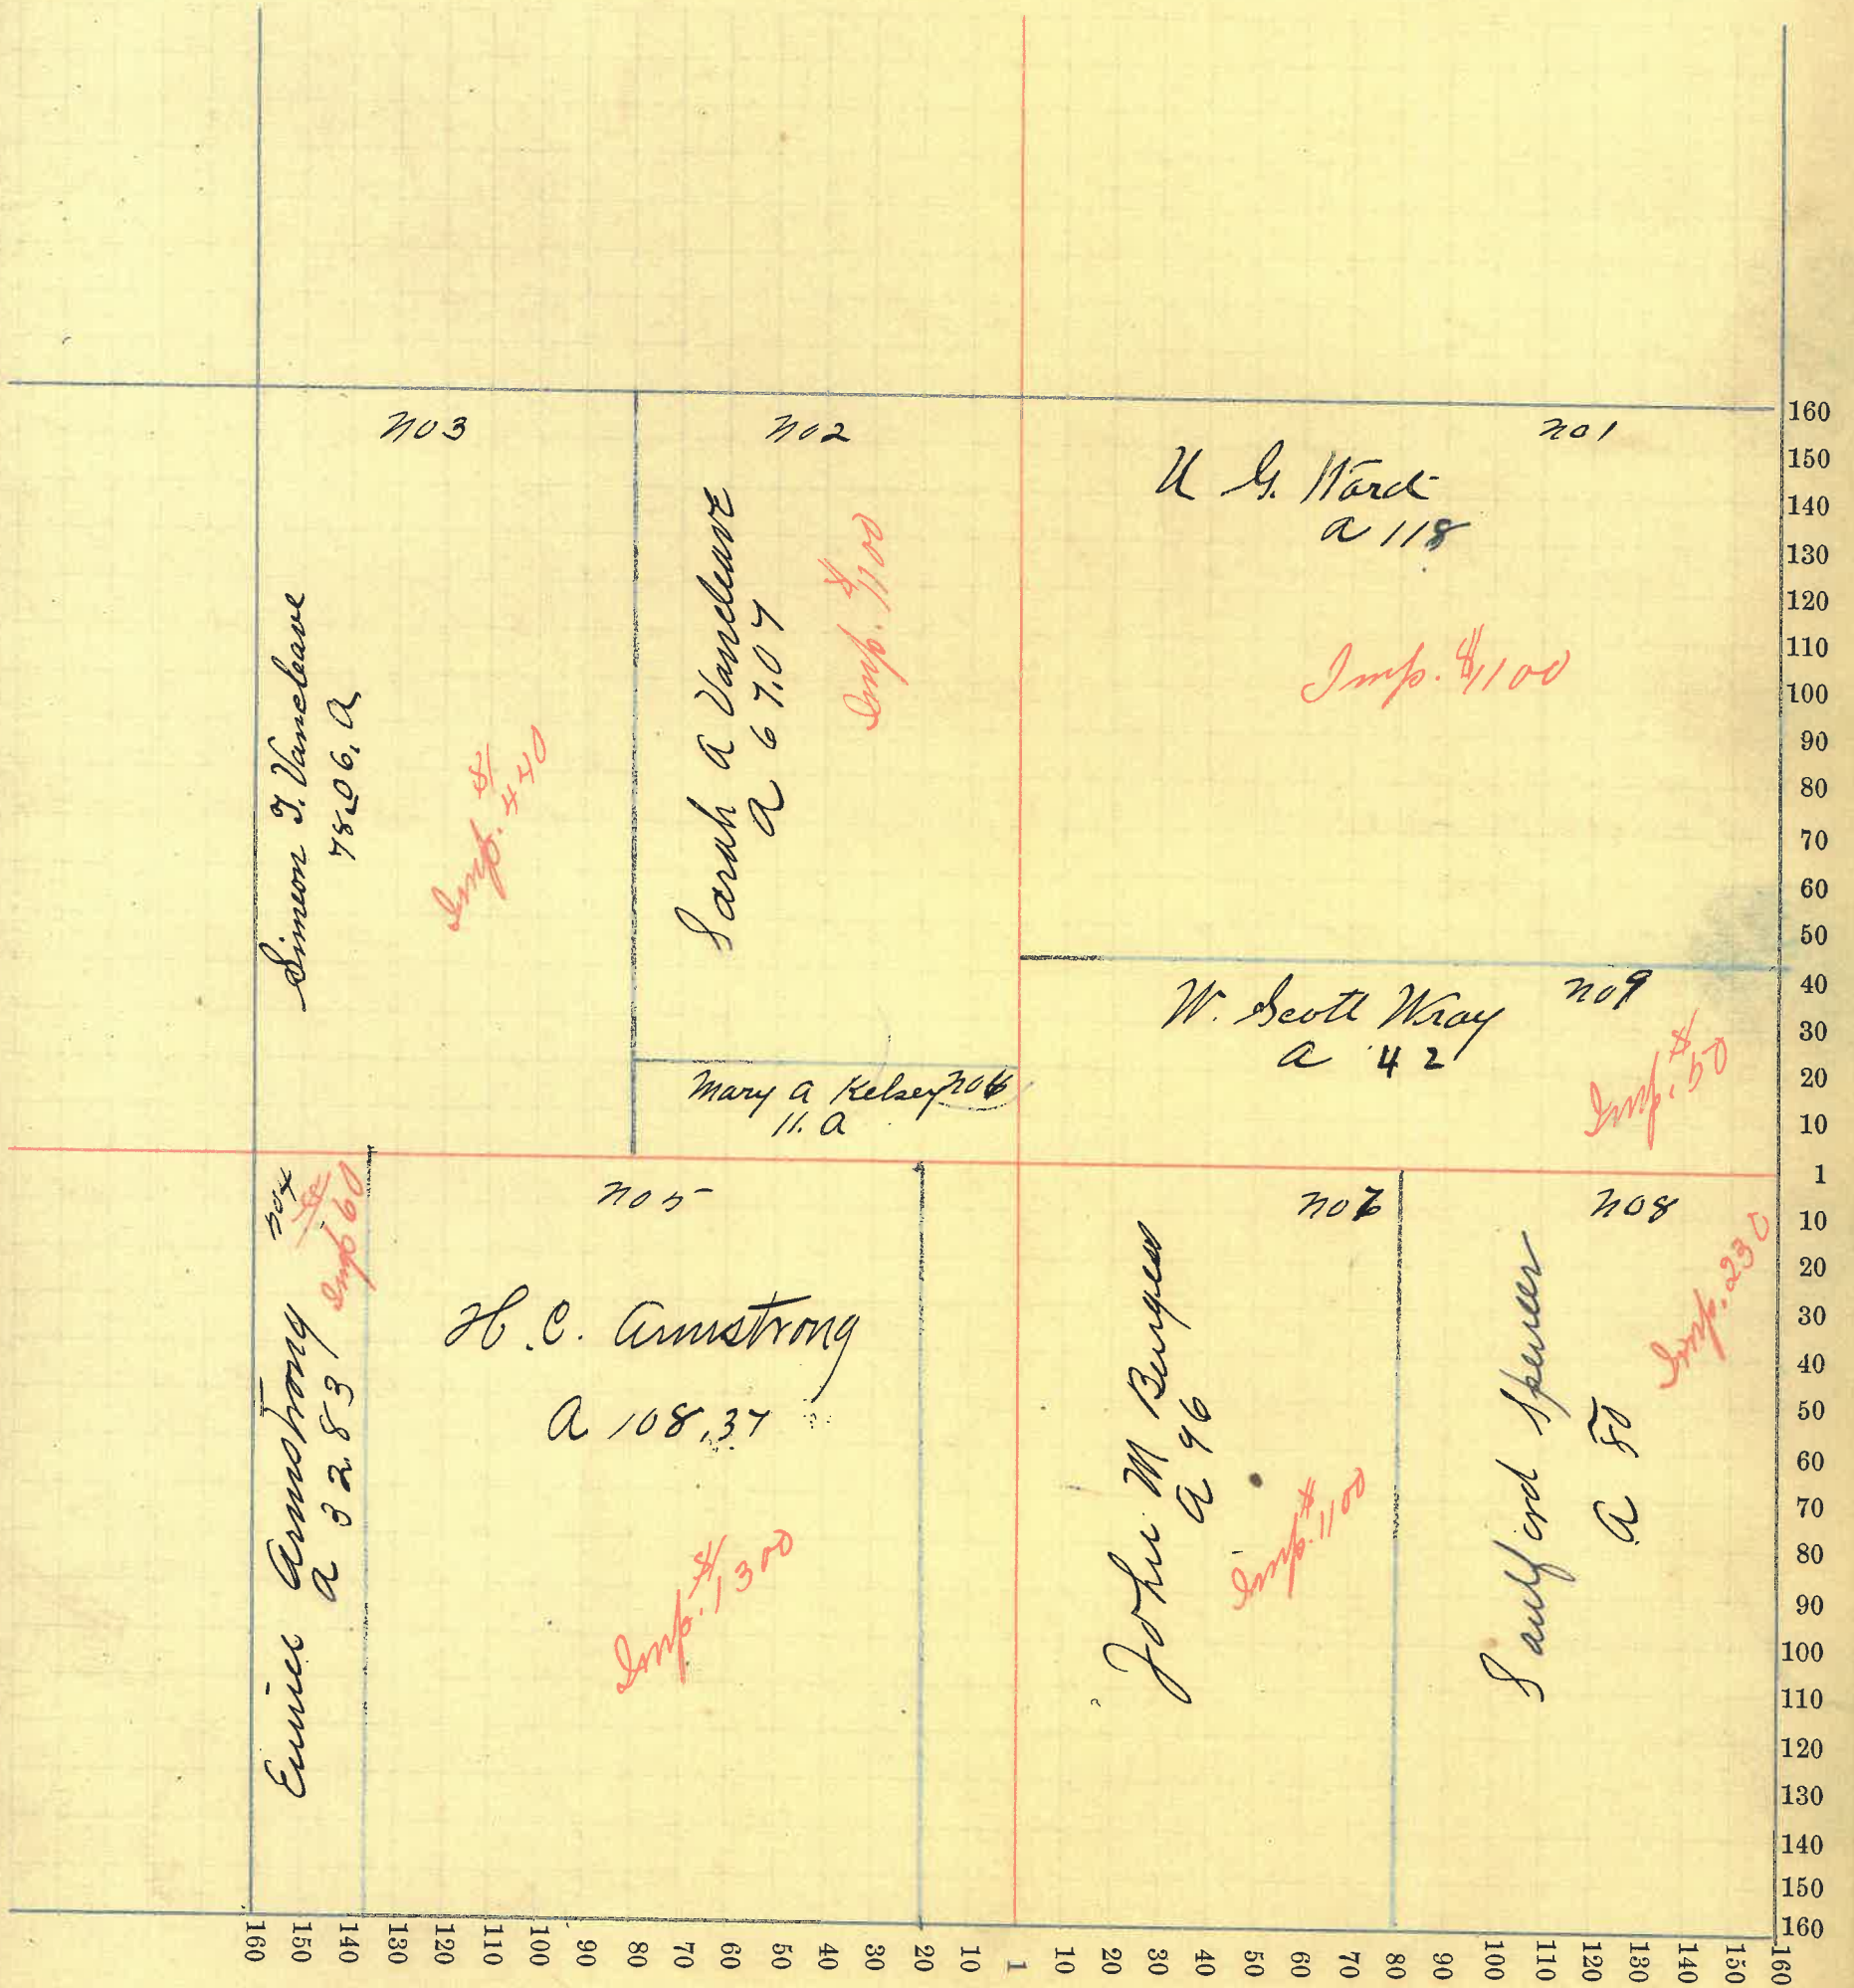 no 3
Simeon T. Vancleave
78.06. A
Imp. $440
no 2
Sarah A Vancleave
A 67.07
Imp. $1100
no 1
U G. Ward
A 118
Imp. $1100
W. Scott Wray no 9
A 42
Imp. $50
Mary A Kelsey no 6
11. A
no 4
Eunice Armstrong
A 32.83
Imp 60
no 5
H. C. Armstrong
A 108.37
Imp. $1300
no 7
John M Burgess
A 96
Imp. $1100
no 8
Sanford Spencer
A 80
Imp. 230
160
150
140
130
120
110
100
90
80
70
60
50
40
30
20
10
1
10
20
30
40
50
60
70
80
90
100
110
120
130
140
150
160
160 150 140 130 120 110 100 90 80 70 60 50 40 30 20 10 1 10 20 30 40 50 60 70 80 90 100 110 120 130 140 150 160